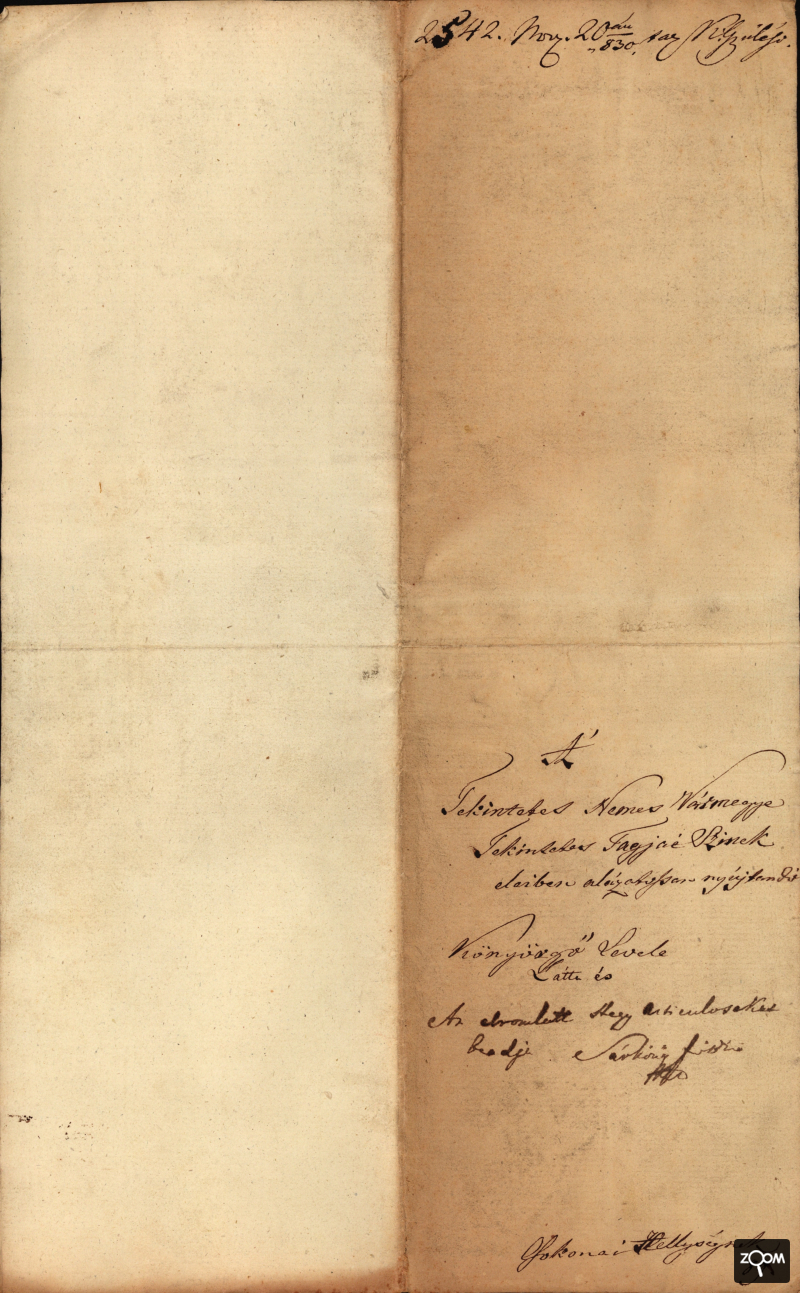 2542. Nov. 20án 830,
A'
Tekintetes Nemes Vármegye
Tekintetes Tagjai Szinek
eleiben alázatossan nyújtandó
Könyörgő Levele
Látta és
Az elromlott Hegy Articulusokat
beadja Sárközy
Csokonai Hellység
ZOOM